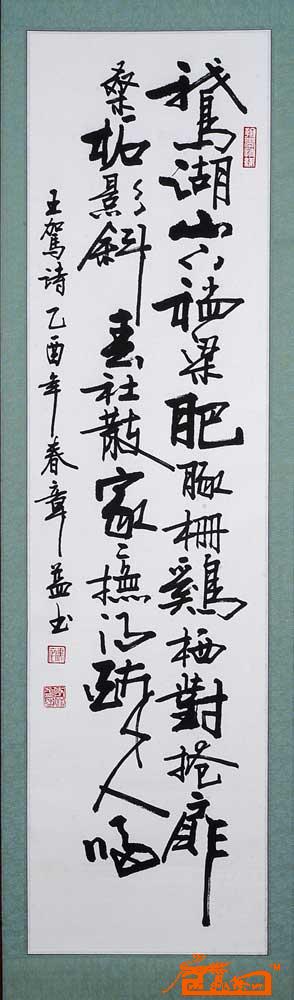 鵝湖山下稻粱肥豚柵鷄栖對掩扉
桑柘影斜春社散家〻撫得醉人歸
王駕詩乙酉年春章益書